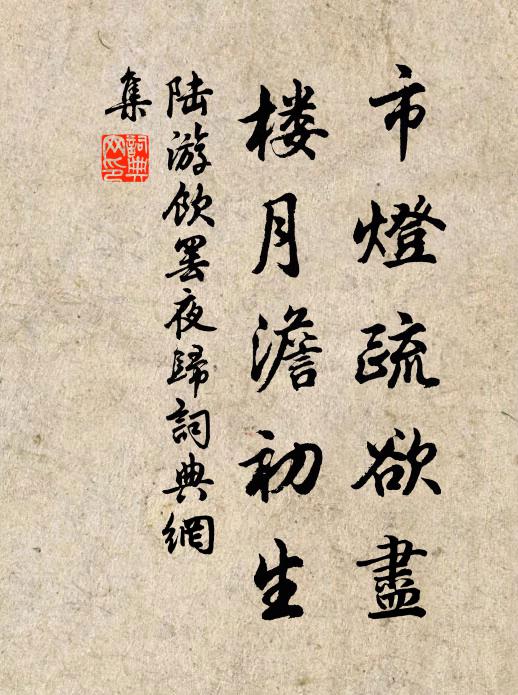 市燈疏欲盡
楼月澹初生
陆游飲罢夜歸詞典網
集
詞典